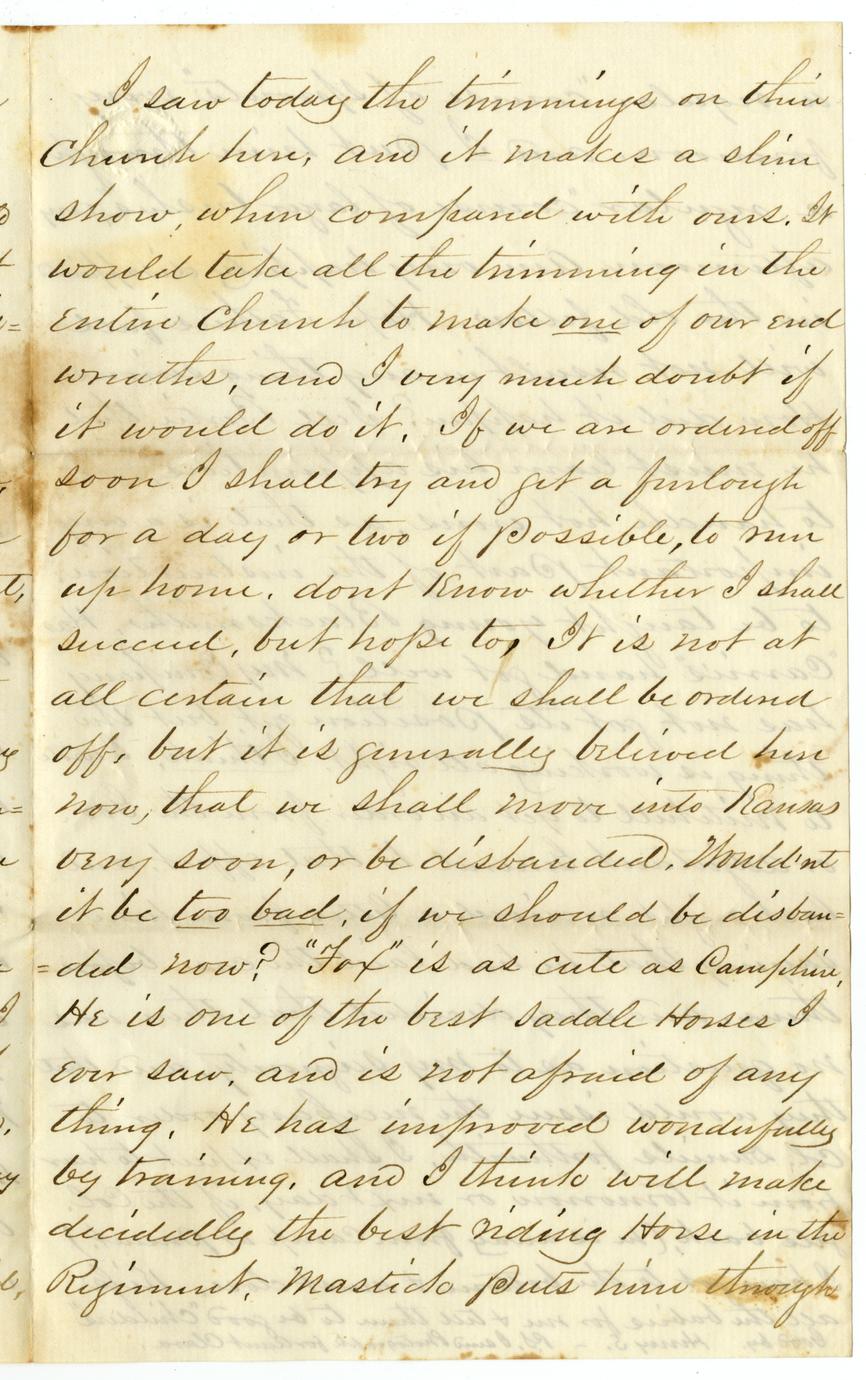 I saw today the trimmings on their
Church here, and it makes a slim
show, when compared with ours. It
would take all the trimming in the
Entire Church to make one of our end
wreaths, and I very much doubt if
it would do it. If we are ordered off
soon I shall try and get a furlough
for a day or two if Possible, to run
up home. dont Know whether I shall
succeed, but hope to, It is not at
all certain that we shall be ordered
off, but it is generally believed here
now, that we shall move into Kansas
very soon, or be disbanded. Would'nt
it be too bad, if we should be disban=
=ded now? "Fox" is as cute as Camphire,
He is one of the best Saddle Horses I
Ever saw, and is not afraid of any
thing. He has improved wonderfully
by training, and I think will make
decidedly the best riding Horse in the
Regiment. Mastick Puts him through